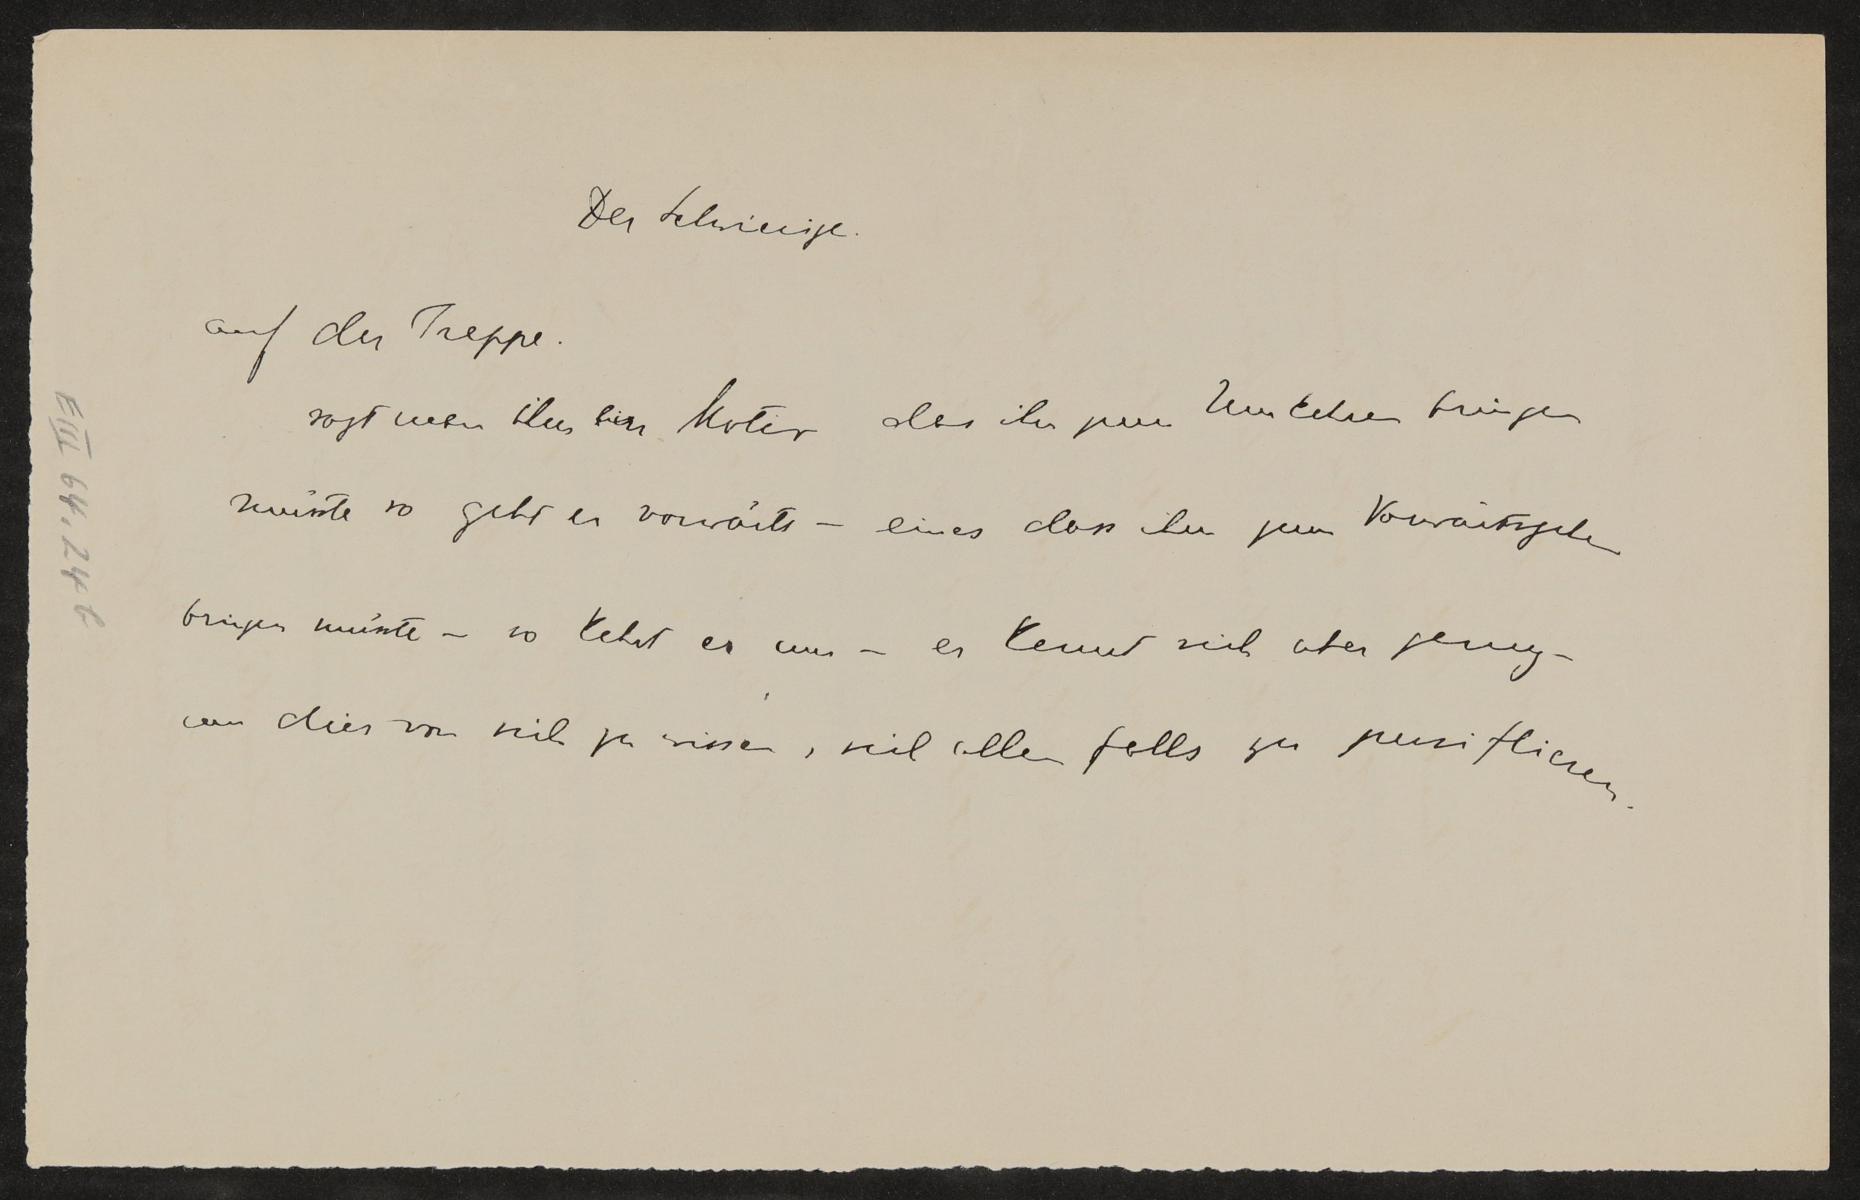 Der Schwierige.
auf der Treppe.
sagt man ihm ein Motiv das ihn zum Umkehren bringen
müsste so geht er vorwärts – eines dass ihn zum Vorwärtsgehen
bringen müsste – so kehrt er um – er kennt sich aber genug –
um dies von sich zu wissen, sich allen falls zu persiflieren.
E III 64.24 b